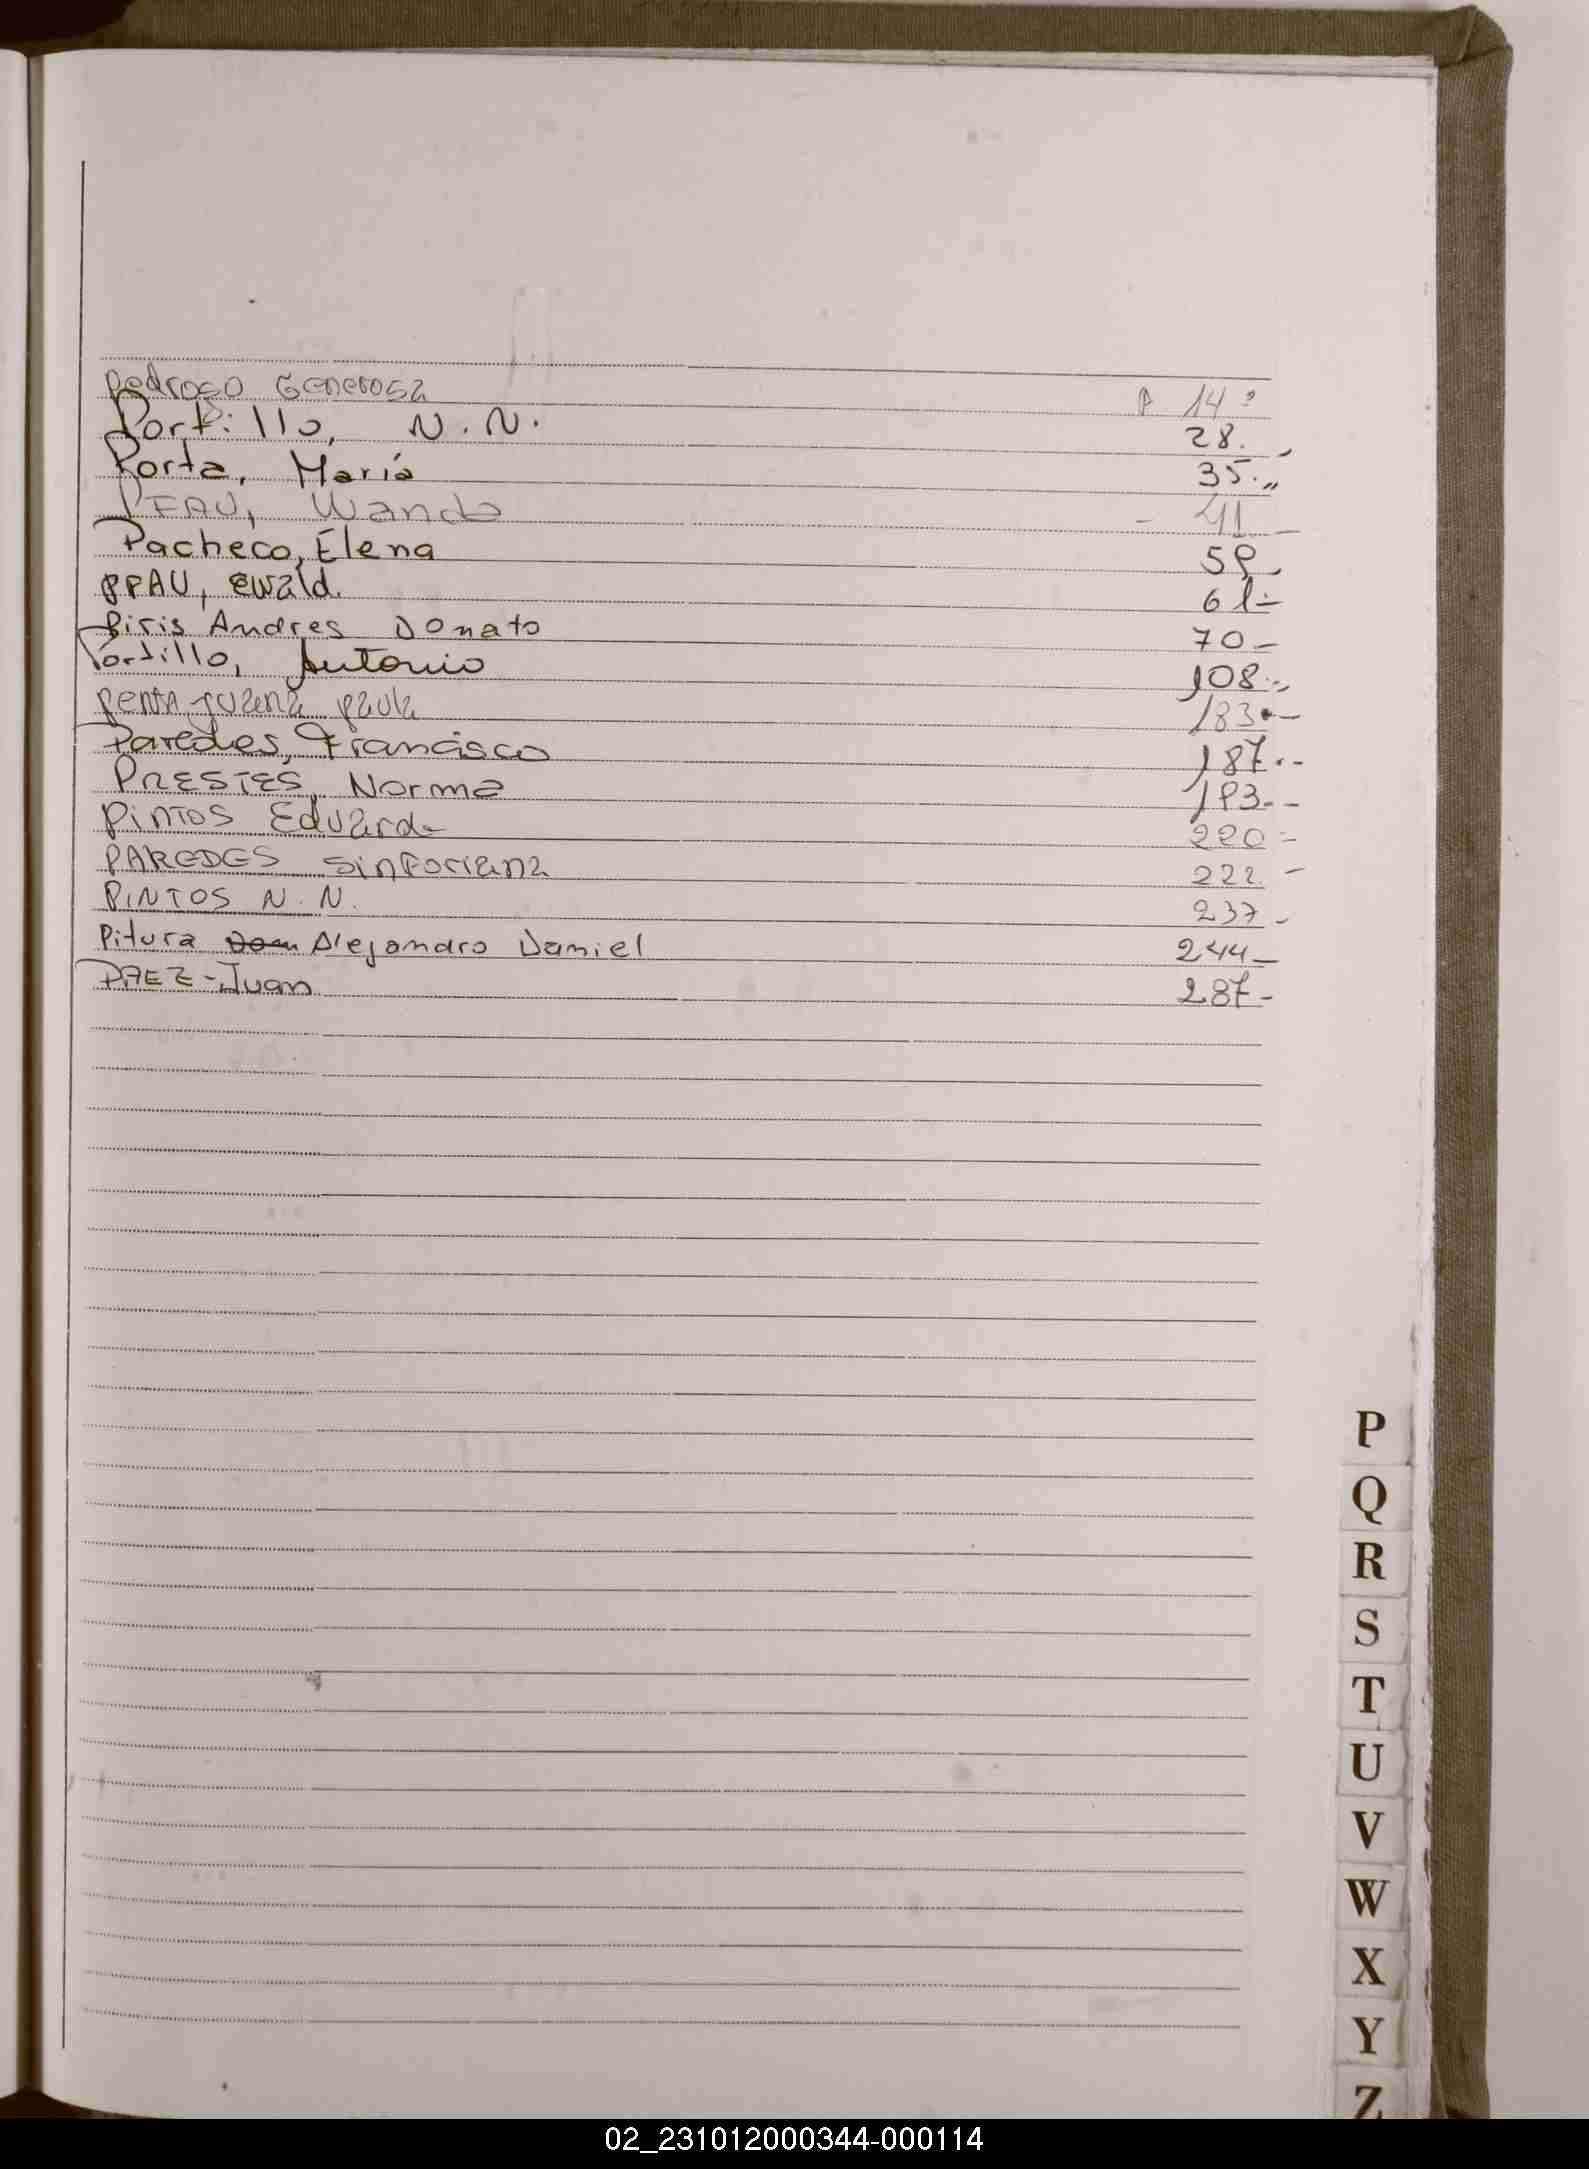 Pedroso Generosa P 14=
Portillo, N.N. 28.
Porta, María 35.,,
PFAU, Wanda - 41 -
Pacheco, Elena 59
PFAU, Ewald. 61-
Piris Andres Donato 70-
Portillo, Antonio 108.,
Penta, Juana Paula 183.-
Paredes, Francisco 187.-
PRESTES, Norma 193.-
Pintos Eduardo 220-
PAREDES Sinforiana 222. -
PINTOS N.N. 237-
Pitura Alejandro Daniel 244-
PAEZ-Juan 287-
P
Q
R
S
T
U
V
W
X
Y
Z
02_231012000344-000114